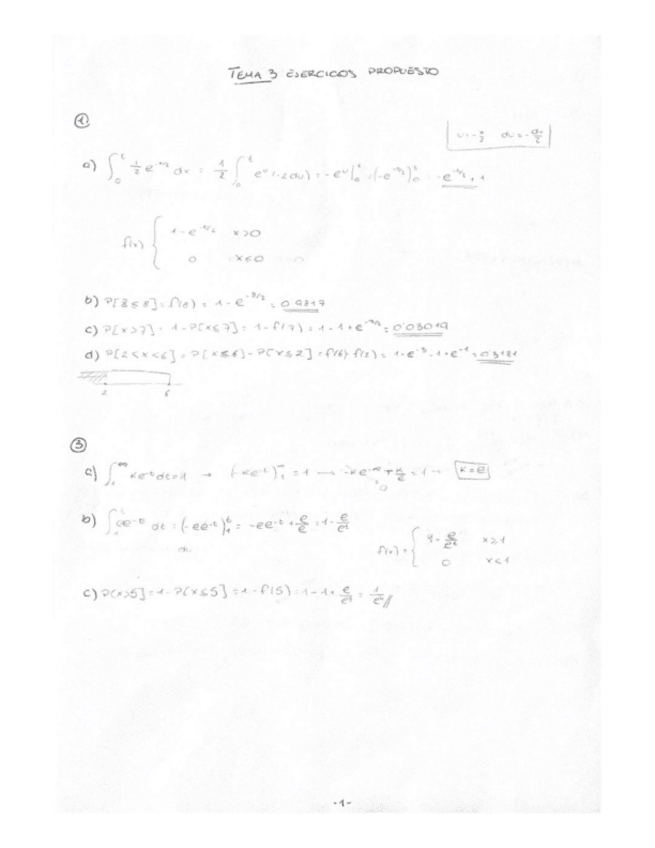 TEMA 3 EJERCICIOS PROPUESTO
①
u=-x/2 du=-dx/2
a) ∫₀ᵗ 1/2 e^(-x/2) dx = 1/2 ∫₀ᵗ e^u (-2du) = -e^u |₀ᵗ = (-e^(-x/2))₀ᵗ = -e^(-t/2) + 1
f(x) { 1-e^(-x/2) x>0
0 x≤0
b) P[X≤8] = f(8) = 1-e^(-8/2) = 0'9817
c) P[x>7] = 1-P[x≤7] = 1-f(7) = 1-1+e^(-7/2) = 0'03019
d) P[2<x<6] = P[x≤6]-P[x≤2] = f(6)-f(2) = 1-e^(-3)-1+e^(-1) = 0'3181
2 6
③
a) ∫₁^∞ ke^(-t) dt=1 → (-ke^(-t))₁^∞ = 1 → -ke^(-∞) + k/e = 1 → k=e
0
b) ∫₁ᵗ ee^(-t) dt = (-ee^(-t))₁ᵗ = -ee^(-t) + e/e = 1 - e/eᵗ
f(x) = { 1 - e/eˣ x≥1
0 x<1
c) P[x>5] = 1-P[x≤5] = 1-f(5) = 1-1+ e/e⁵ = 1/e⁴ //
-1-